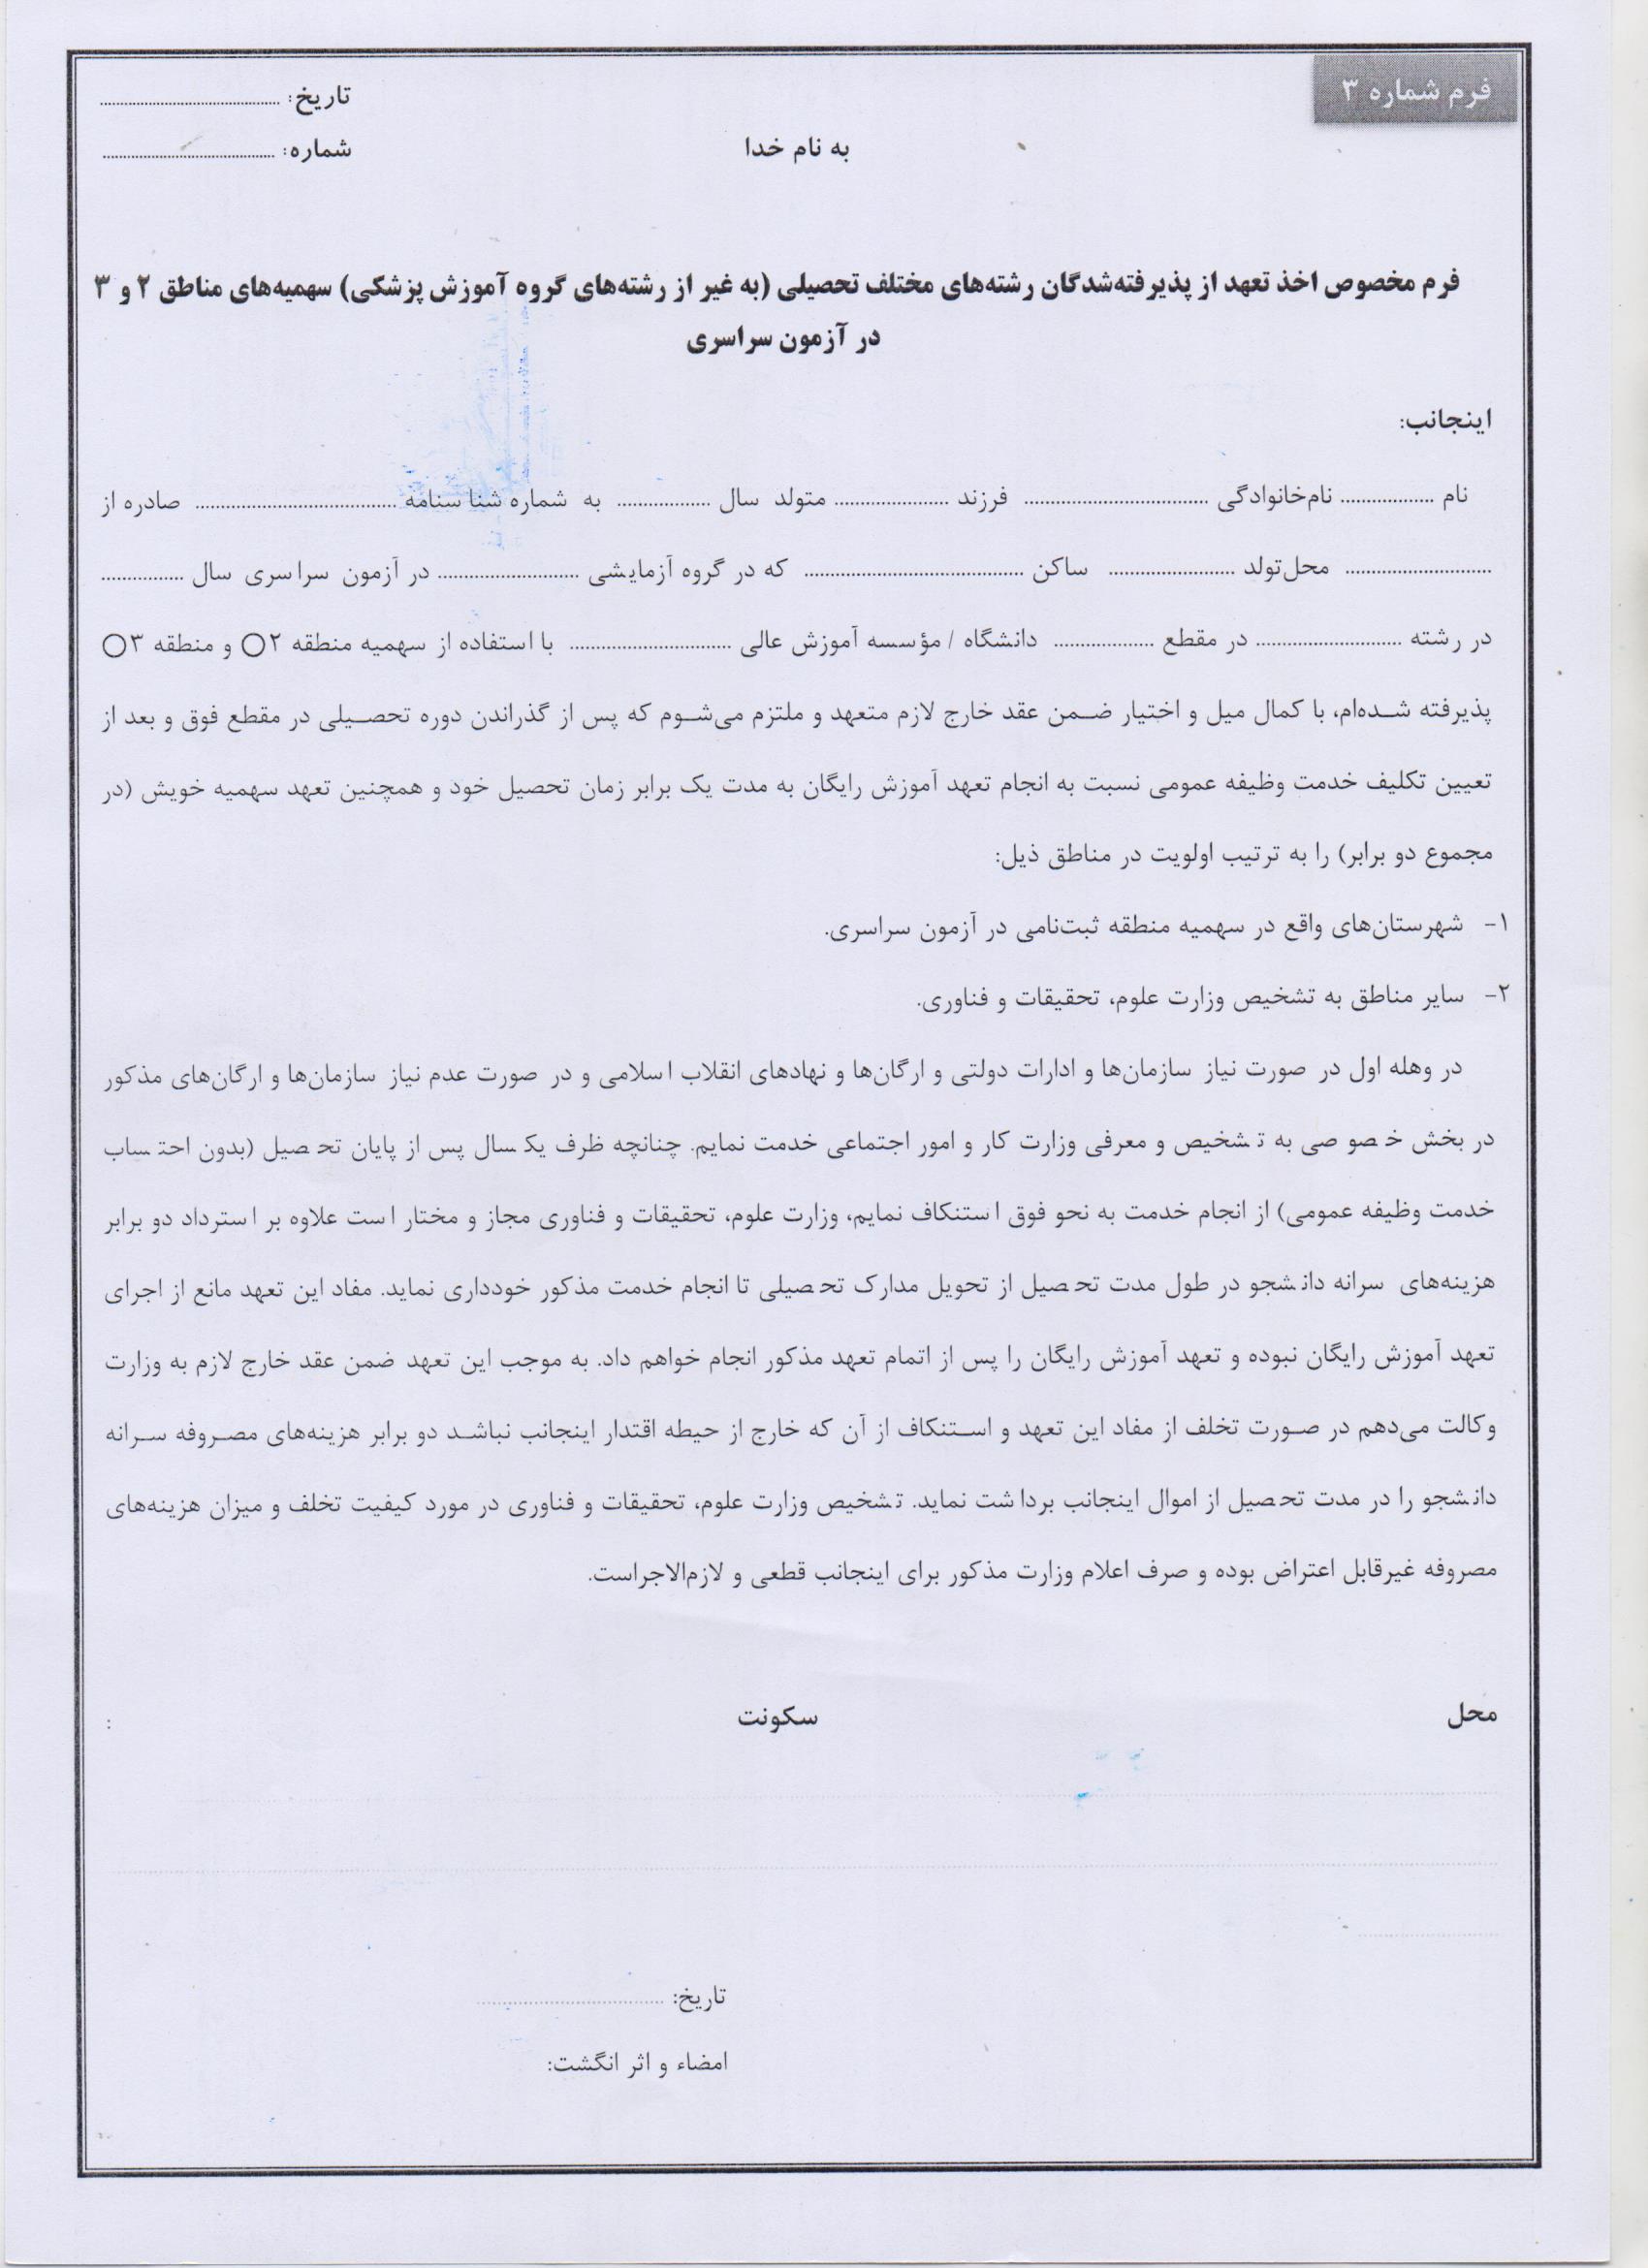 فرم شماره ۳
تاریخ: ....................
شماره: ....................
به نام خدا
فرم مخصوص اخذ تعهد از پذیرفته‌شدگان رشته‌های مختلف تحصیلی (به غیر از رشته‌های گروه آموزش پزشکی) سهمیه‌های مناطق ۲ و ۳
در آزمون سراسری
اینجانب:
نام ................ نام‌خانوادگی ................................ فرزند .................... متولد سال ................ به شماره شناسنامه .................................... صادره از
.......................... محل‌تولد ...................... ساکن ...................................... که در گروه آزمایشی ......................... در آزمون سراسری سال ...............
در رشته .......................... در مقطع .................. دانشگاه / مؤسسه آموزش عالی ............................. با استفاده از سهمیه منطقه ۲○ و منطقه ۳○
پذیرفته شده‌ام، با کمال میل و اختیار ضمن عقد خارج لازم متعهد و ملتزم می‌شوم که پس از گذراندن دوره تحصیلی در مقطع فوق و بعد از
تعیین تکلیف خدمت وظیفه عمومی نسبت به انجام تعهد آموزش رایگان به مدت یک برابر زمان تحصیل خود و همچنین تعهد سهمیه خویش (در
مجموع دو برابر) را به ترتیب اولویت در مناطق ذیل:
۱- شهرستان‌های واقع در سهمیه منطقه ثبت‌نامی در آزمون سراسری.
۲- سایر مناطق به تشخیص وزارت علوم، تحقیقات و فناوری.
در وهله اول در صورت نیاز سازمان‌ها و ادارات دولتی و ارگان‌ها و نهادهای انقلاب اسلامی و در صورت عدم نیاز سازمان‌ها و ارگان‌های مذکور
در بخش خصوصی به تشخیص و معرفی وزارت کار و امور اجتماعی خدمت نمایم. چنانچه ظرف یکسال پس از پایان تحصیل (بدون احتساب
خدمت وظیفه عمومی) از انجام خدمت به نحو فوق استنکاف نمایم، وزارت علوم، تحقیقات و فناوری مجاز و مختار است علاوه بر استرداد دو برابر
هزینه‌های سرانه دانشجو در طول مدت تحصیل از تحویل مدارک تحصیلی تا انجام خدمت مذکور خودداری نماید. مفاد این تعهد مانع از اجرای
تعهد آموزش رایگان نبوده و تعهد آموزش رایگان را پس از اتمام تعهد مذکور انجام خواهم داد. به موجب این تعهد ضمن عقد خارج لازم به وزارت
وکالت می‌دهم در صورت تخلف از مفاد این تعهد و استنکاف از آن که خارج از حیطه اقتدار اینجانب نباشد دو برابر هزینه‌های مصروفه سرانه
دانشجو را در مدت تحصیل از اموال اینجانب برداشت نماید. تشخیص وزارت علوم، تحقیقات و فناوری در مورد کیفیت تخلف و میزان هزینه‌های
مصروفه غیرقابل اعتراض بوده و صرف اعلام وزارت مذکور برای اینجانب قطعی و لازم‌الاجراست.
محل سکونت :
تاریخ: ....................
امضاء و اثر انگشت: